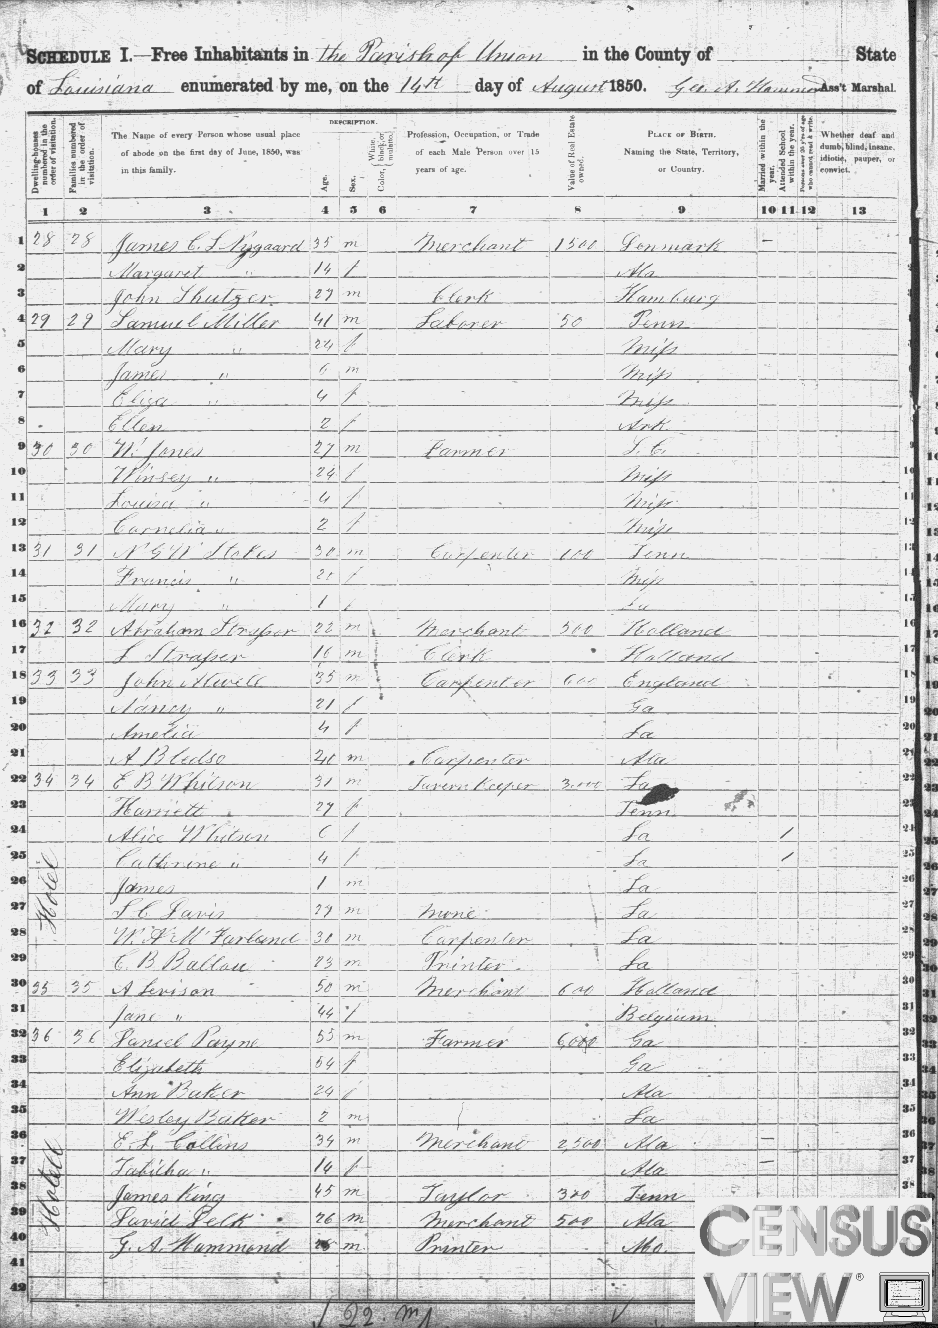 SCHEDULE I.—Free Inhabitants in the Parish of Union in the County of State
of Louisiana enumerated by me, on the 14th day of August 1850. Geo. A. Hammond Ass't Marshal.
Dwelling-houses numbered in the order of visitation. Families numbered in the order of visitation. The Name of every Person whose usual place of abode on the first day of June, 1850, was in this family. DESCRIPTION. Age. Sex. Color, White, black, or mulatto. Profession, Occupation, or Trade of each Male Person over 15 years of age. Value of Real Estate owned. PLACE OF BIRTH. Naming the State, Territory, or Country. Married within the year. Attended School within the year. Persons over 20 y'rs of age who cannot read & write. Whether deaf and dumb, blind, insane, idiotic, pauper, or convict.
1 2 3 4 5 6 7 8 9 10 11 12 13
1 28 28 James C. L. Nygaard 35 m Merchant 1500 Denmark –
2 Margaret " 14 f Ala
3 John Shutzer 27 m Clerk Hamburg
4 29 29 Samuel Miller 41 m Laborer 50 Penn
5 Mary " 24 f Miss
6 James " 6 m Miss
7 Eliza " 4 f Miss
8 Ellen 2 f Ark
9 30 30 W. Jones 27 m Farmer S. C.
10 Winsey " 24 f Miss
11 Louisa " 4 f Miss
12 Cornelia " 2 f Miss
13 31 31 N G W Stokes 30 m Carpenter Tenn
14 Francis " 20 f Miss
15 Mary " 1 f La
16 32 32 Abraham Strasser 22 m Merchant 300 Holland
17 L Strasser 16 m Clerk Holland
18 33 33 John Atwell 35 m Carpenter 600 England
19 Nancy " 21 f Ga
20 Amelia 4 f La
21 A Bledso m Carpenter Ala
22 34 34 E B Whitson 31 m Tavern Keeper 3000 La
23 Harriett 27 f Tenn
24 Alice Whitson 6 f La /
25 Catherine " 4 f La /
26 James 1 m La
27 S C Davis 27 m None La
28 W. A McFarland 30 m Carpenter La
29 C. B Ballou 23 m Printer La
Hotel
30 35 35 A Levison 50 m Merchant 600 Holland
31 Jane " 44 f Belgium
32 36 36 Lancel Payne 55 m Farmer 6,000 Ga
33 Elizabeth 54 f Ga
34 Ann Baker 24 f Ala
35 Wesley Baker 2 m La
36 E. L. Collins 34 m Merchant 2,500 Ala –
37 Tabitha " 14 f Ala –
38 James King 45 m Taylor 300 Tenn
39 David Pelk 26 m Merchant 500 Ala
40 G. A. Hammond m Printer Mo.
41
42
Hotell
22 m
CENSUS VIEW ®